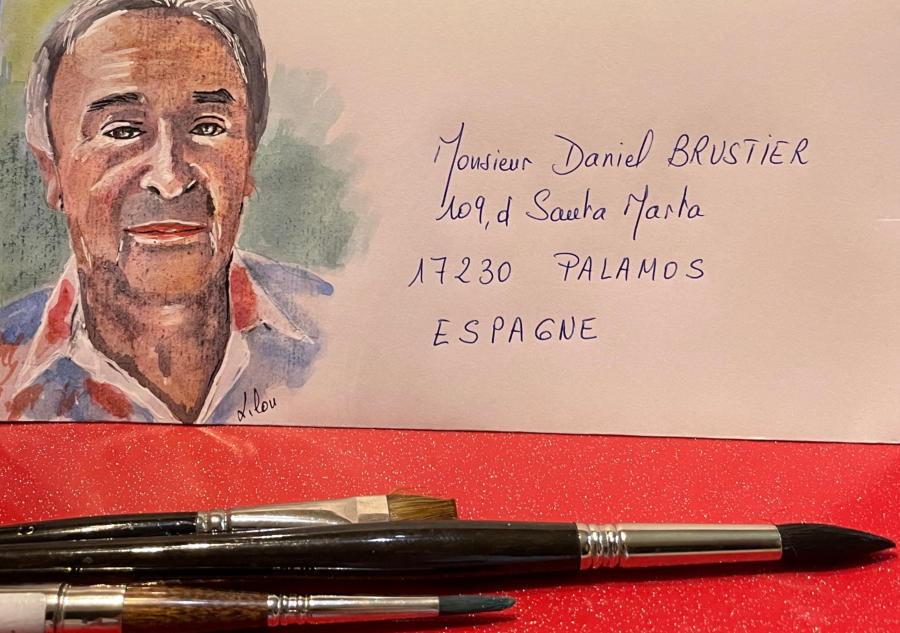 Monsieur Daniel BRUSTIER
109, d Santa Marta
17230 PALAMOS
ESPAGNE
Lilou